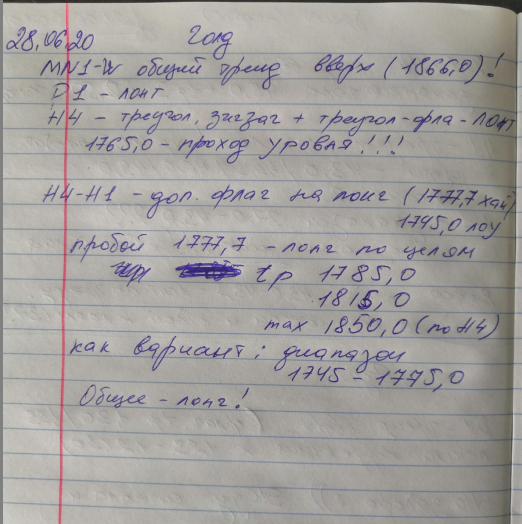 28.06.20 Голд
MN1-W общий тренд вверх (1866,0)!
D1 - лонг
H4 - треугол. зигзаг + треугол-фла - лонг
1765,0 - проход уровня!!!
H4-H1 - доп. флаг на лонг (1777,7 хай)
1745,0 лоу
пробой 1777,7 - лонг по целям
tp 1785,0
1815,0
max 1850,0 (по H4)
как вариант: диапазон
1745 - 1775,0
Общее - лонг!